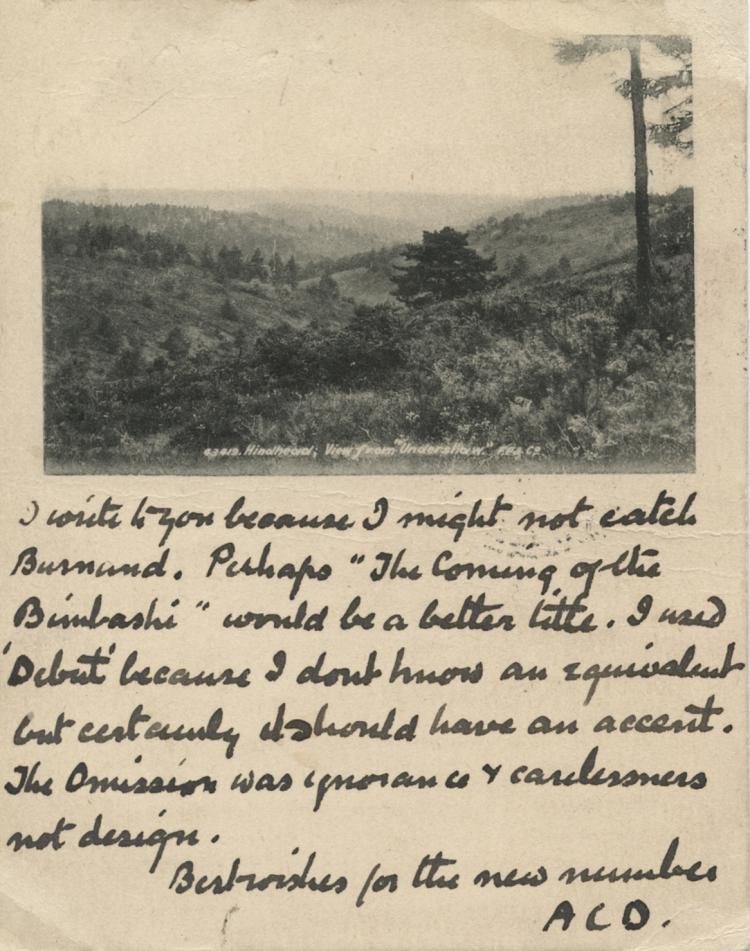 43413. Hindhead, View from "Undershaw." F.F.& Co.
I write to you because I might not catch
Burnand. Perhaps "The Coming of the
Bimbashi" would be a better title. I used
'Debut' because I dont know an equivalent
but certainly it should have an accent.
The Omission was ignorance & carelessness
not design.
Best wishes for the new number
A C D.